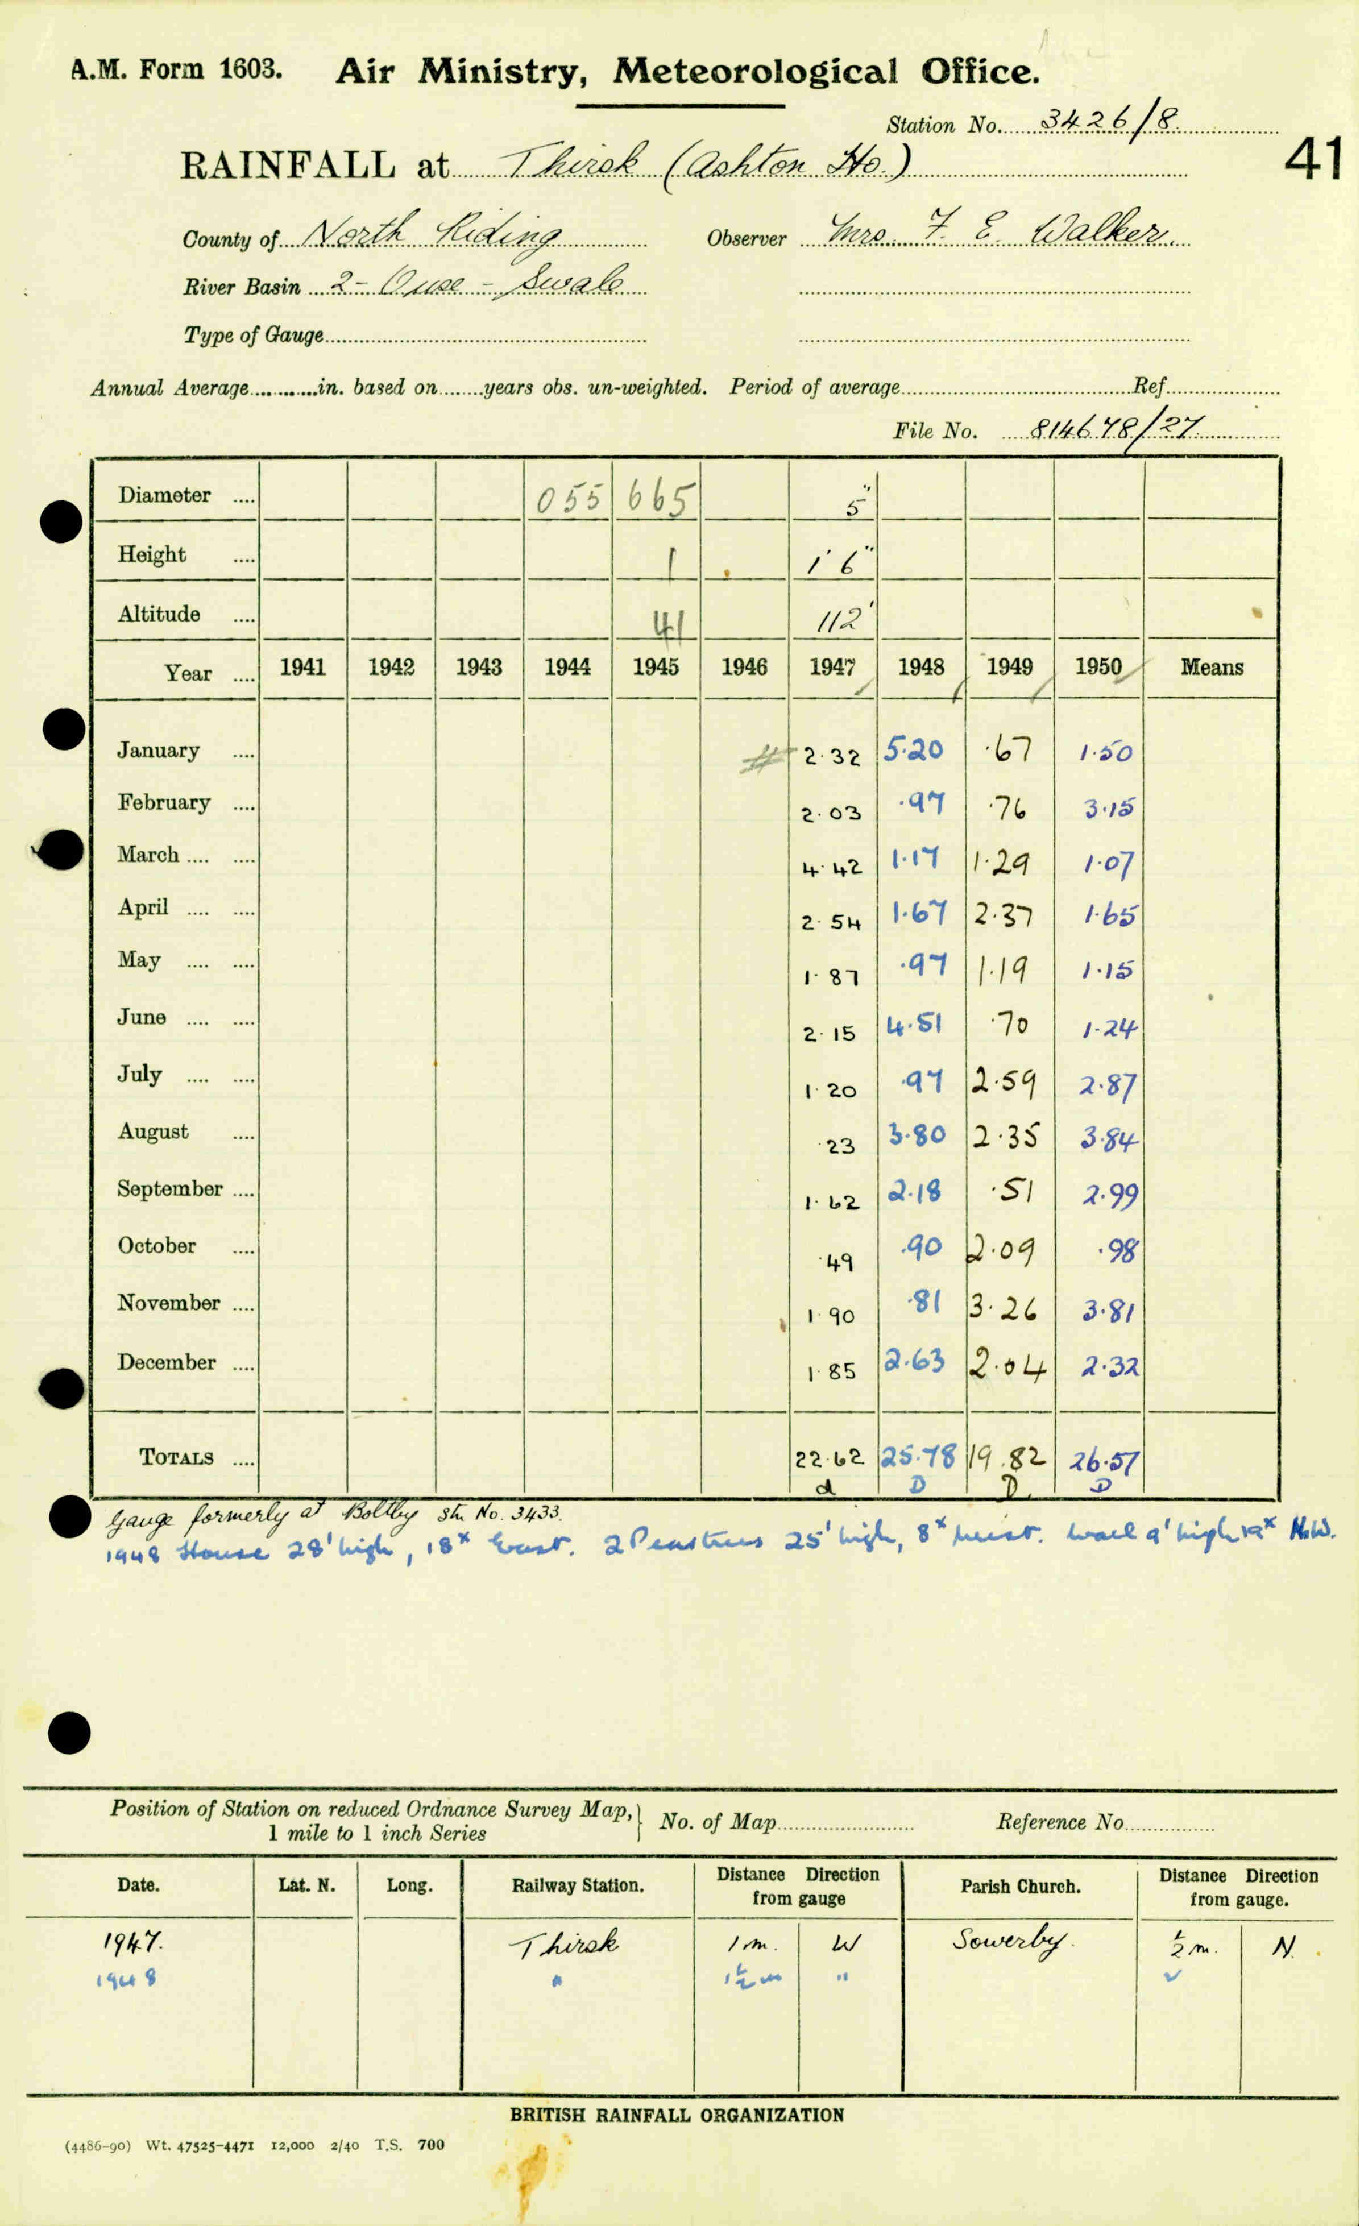 A.M. Form 1603. Air Ministry, Meteorological Office.
Station No. 3426/8.
41
RAINFALL at Thirsk (Ashton Ho.)
County of North Riding Observer Mrs. F. E. Walker.
River Basin 2 - Ouse - Swale
Type of Gauge
Annual Average in. based on years obs. un-weighted. Period of average Ref
File No. 814678/27
Diameter .... 055 665 5"
Height .... 1 1' 6"
Altitude .... 41 112'
Year .... 1941 1942 1943 1944 1945 1946 1947 1948 1949 1950 Means
January .... # 2.32 5.20 .67 1.50
February .... 2.03 .97 .76 3.15
March .... .... 4.42 1.17 1.29 1.07
April .... .... 2.54 1.67 2.37 1.65
May .... .... 1.87 .97 1.19 1.15
June .... .... 2.15 4.51 .70 1.24
July .... .... 1.20 .97 2.59 2.87
August .... .23 3.80 2.35 3.84
September .... 1.62 2.18 .51 2.99
October .... .49 .90 2.09 .98
November .... 1.90 .81 3.26 3.81
December .... 1.85 2.63 2.04 2.32
TOTALS .... 22.62 25.78 19.82 26.57
d D D D
Gauge formerly at Boltby Stn No. 3433.
1948 House 28' high, 18x East. 2 Peartrees 25' high, 8x West. Wall 9' high 19x N.W.
Position of Station on reduced Ordnance Survey Map, } No. of Map Reference No
1 mile to 1 inch Series
Date. Lat. N. Long. Railway Station. Distance Direction from gauge Parish Church. Distance Direction from gauge.
1947. Thirsk 1 m. W Sowerby. ½ m. N.
1948 " 1½ m "
BRITISH RAINFALL ORGANIZATION
(4486-90) Wt. 47525-4471 12,000 2/40 T.S. 700